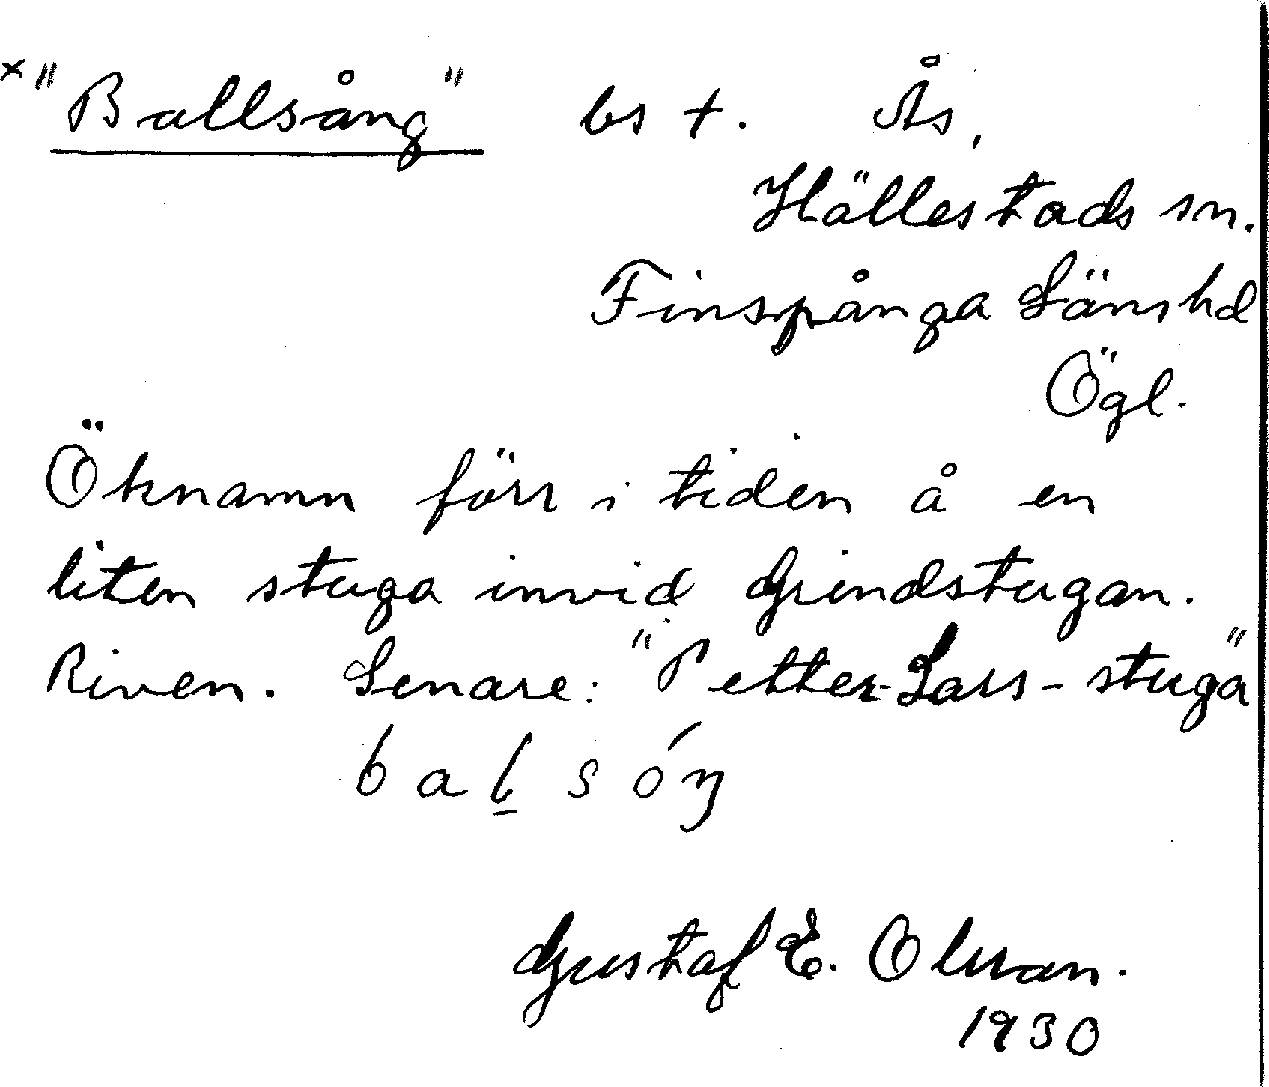 × "Ballsång" bs t. Ås,
Hällestads sn.
Finspånga Länshd
Ögl.
Öknamn förr i tiden å en
liten stuga invid Grindstugan.
Riven. Senare: "Petter-Lars-stuga"
balsóŋ
Gustaf E. Olsson.
1930